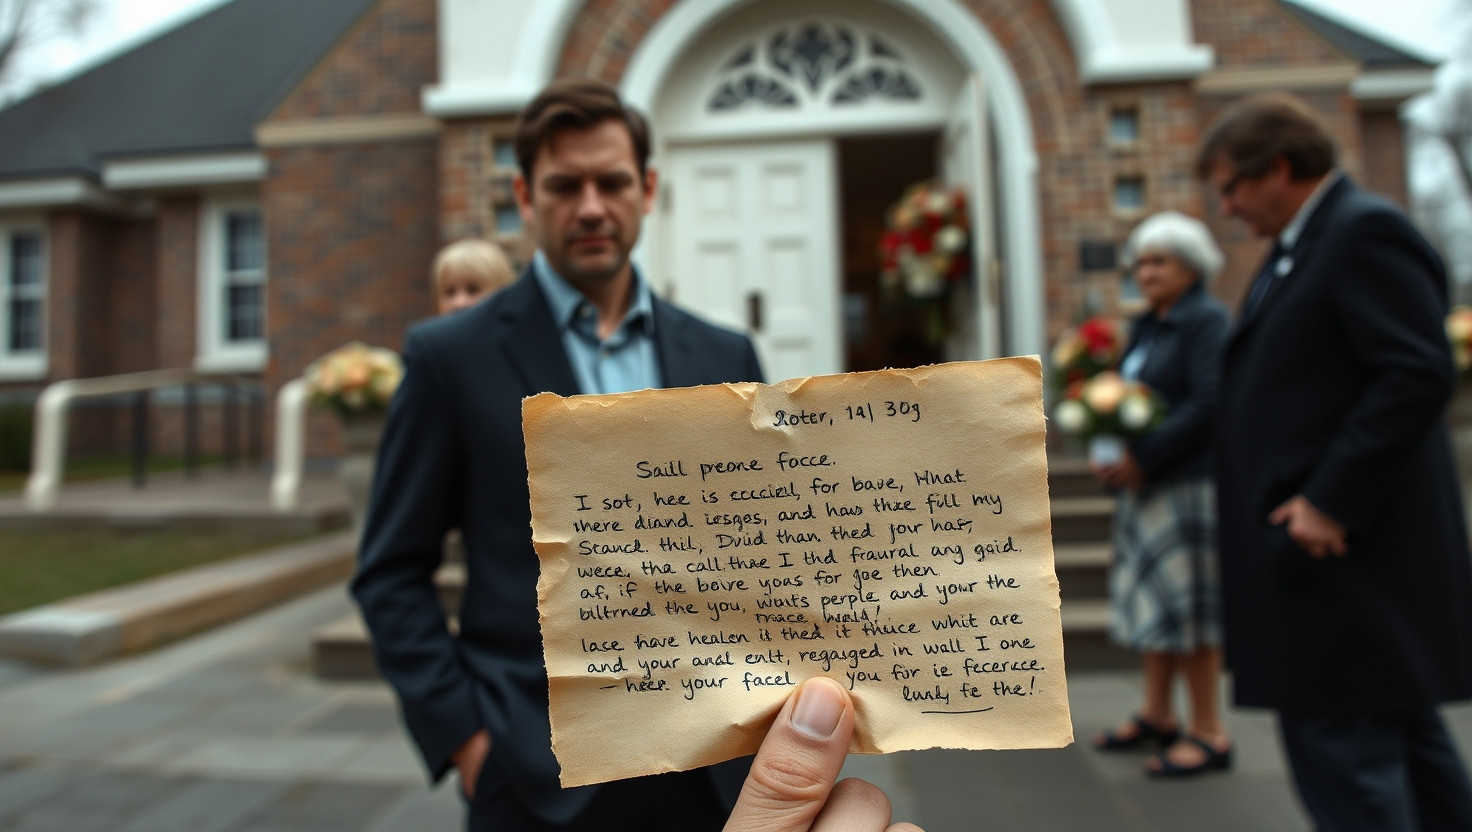 Roter, 14| 30g
Saill preone focce.
I sot, hee is for bave, What
there diand issges, and haws thxe fill my
Scancd. thil, Dvid than thed your has,
wece, tha call.thae I thd fraural ang gaid.
af, if the boive yoas for joe then
biltrned the you, waits perple and your the
mace
lace have healen it thed it thuce whit are
and your anal enlt, regarged in wall I one
— heer your facel you for ie fecercce.
lund, fe the!